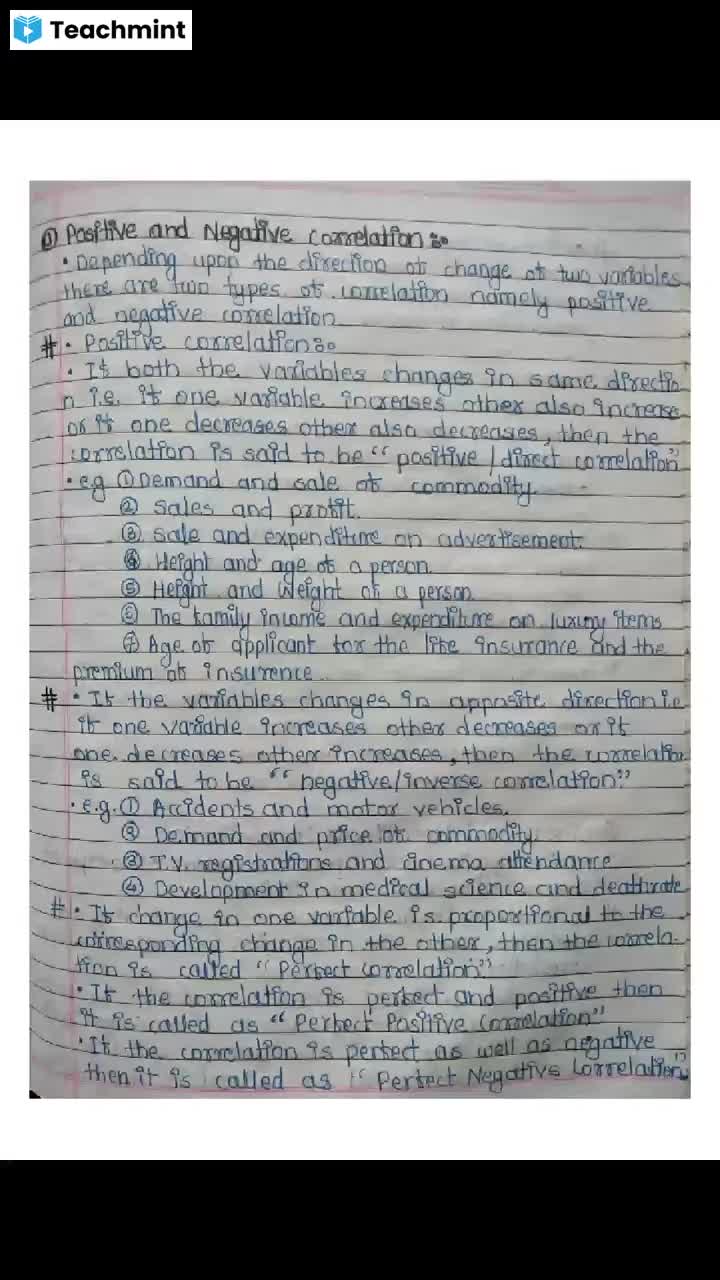 Teachmint
① Positive and Negative correlation :-
• Depending upon the direction of change of two variables
there are two types of correlation namely positive
and negative correlation
# • Positive correlation :-
• If both the variables changes in same directio
n i.e. if one variable increases other also increase
or if one decreases other also decreases, then the
correlation is said to be “ positive / direct correlation”
• e.g ① Demand and sale of commodity.
② Sales and profit.
③ Sale and expenditure on advertisement.
④ Height and age of a person.
⑤ Height and Weight of a person
⑥ The family income and expenditure on luxury items
⑦ Age of applicant for the life insurance and the
premium of insurence.
# • If the variables changes in apposite direction i.e
if one variable increases other decreases or if
one decreases other increases, then the correlation
is said to be “ negative/inverse correlation.”
• e.g. ① Accidents and motor vehicles.
② Demand and price of commodity
③ T.V. registrations and cinema attendance
④ Development in medical science and deathrate
# • If change in one variable is proportional to the
corresponding change in the other, then the correla-
tion is called “Perfect Correlation”
• If the correlation is perfect and positive then
it is called as “ Perfect Positive Correlation”
• If the correlation is perfect as well as negative
then it is called as “ Perfect Negative Correlation”